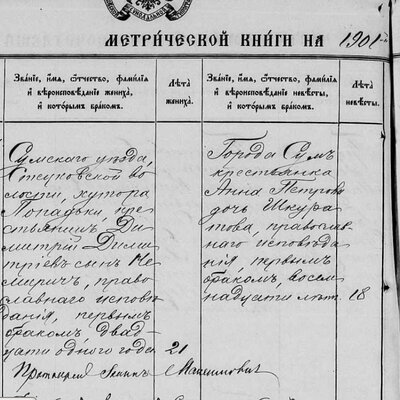 МЕТРИ́ЧЕСКОЙ КНИ́ГИ НА 1901
Зва́ніе, и́мя, о́тчество, фами́лія
и́ вѣроисповѣ́даніе жениха̀,
и́ кото́рымъ бра́комъ.
Лѣ́та
жениха̀.
Зва́ніе, и́мя, о́тчество, фами́лія
и́ вѣроисповѣ́даніе невѣ́сты,
и́ кото́рымъ бра́комъ.
Лѣ́та
невѣ́сты.
Сумскаго уѣзда,
Стецковской во
лости, хутора
кре
стьянинъ Ди
митрій Дими
тріевъ сынъ Не
меричъ, право
славнаго исповѣ
данія, первымъ
бракомъ двад
цати одного года 21
Города Сумъ
крестьянка
Анна Петрова
дочь Шкура
това, православ
наго исповѣда
нія, первымъ
бракомъ, восем
надцати лѣтъ 18
Протоіерей Іоаннъ Максимовичъ